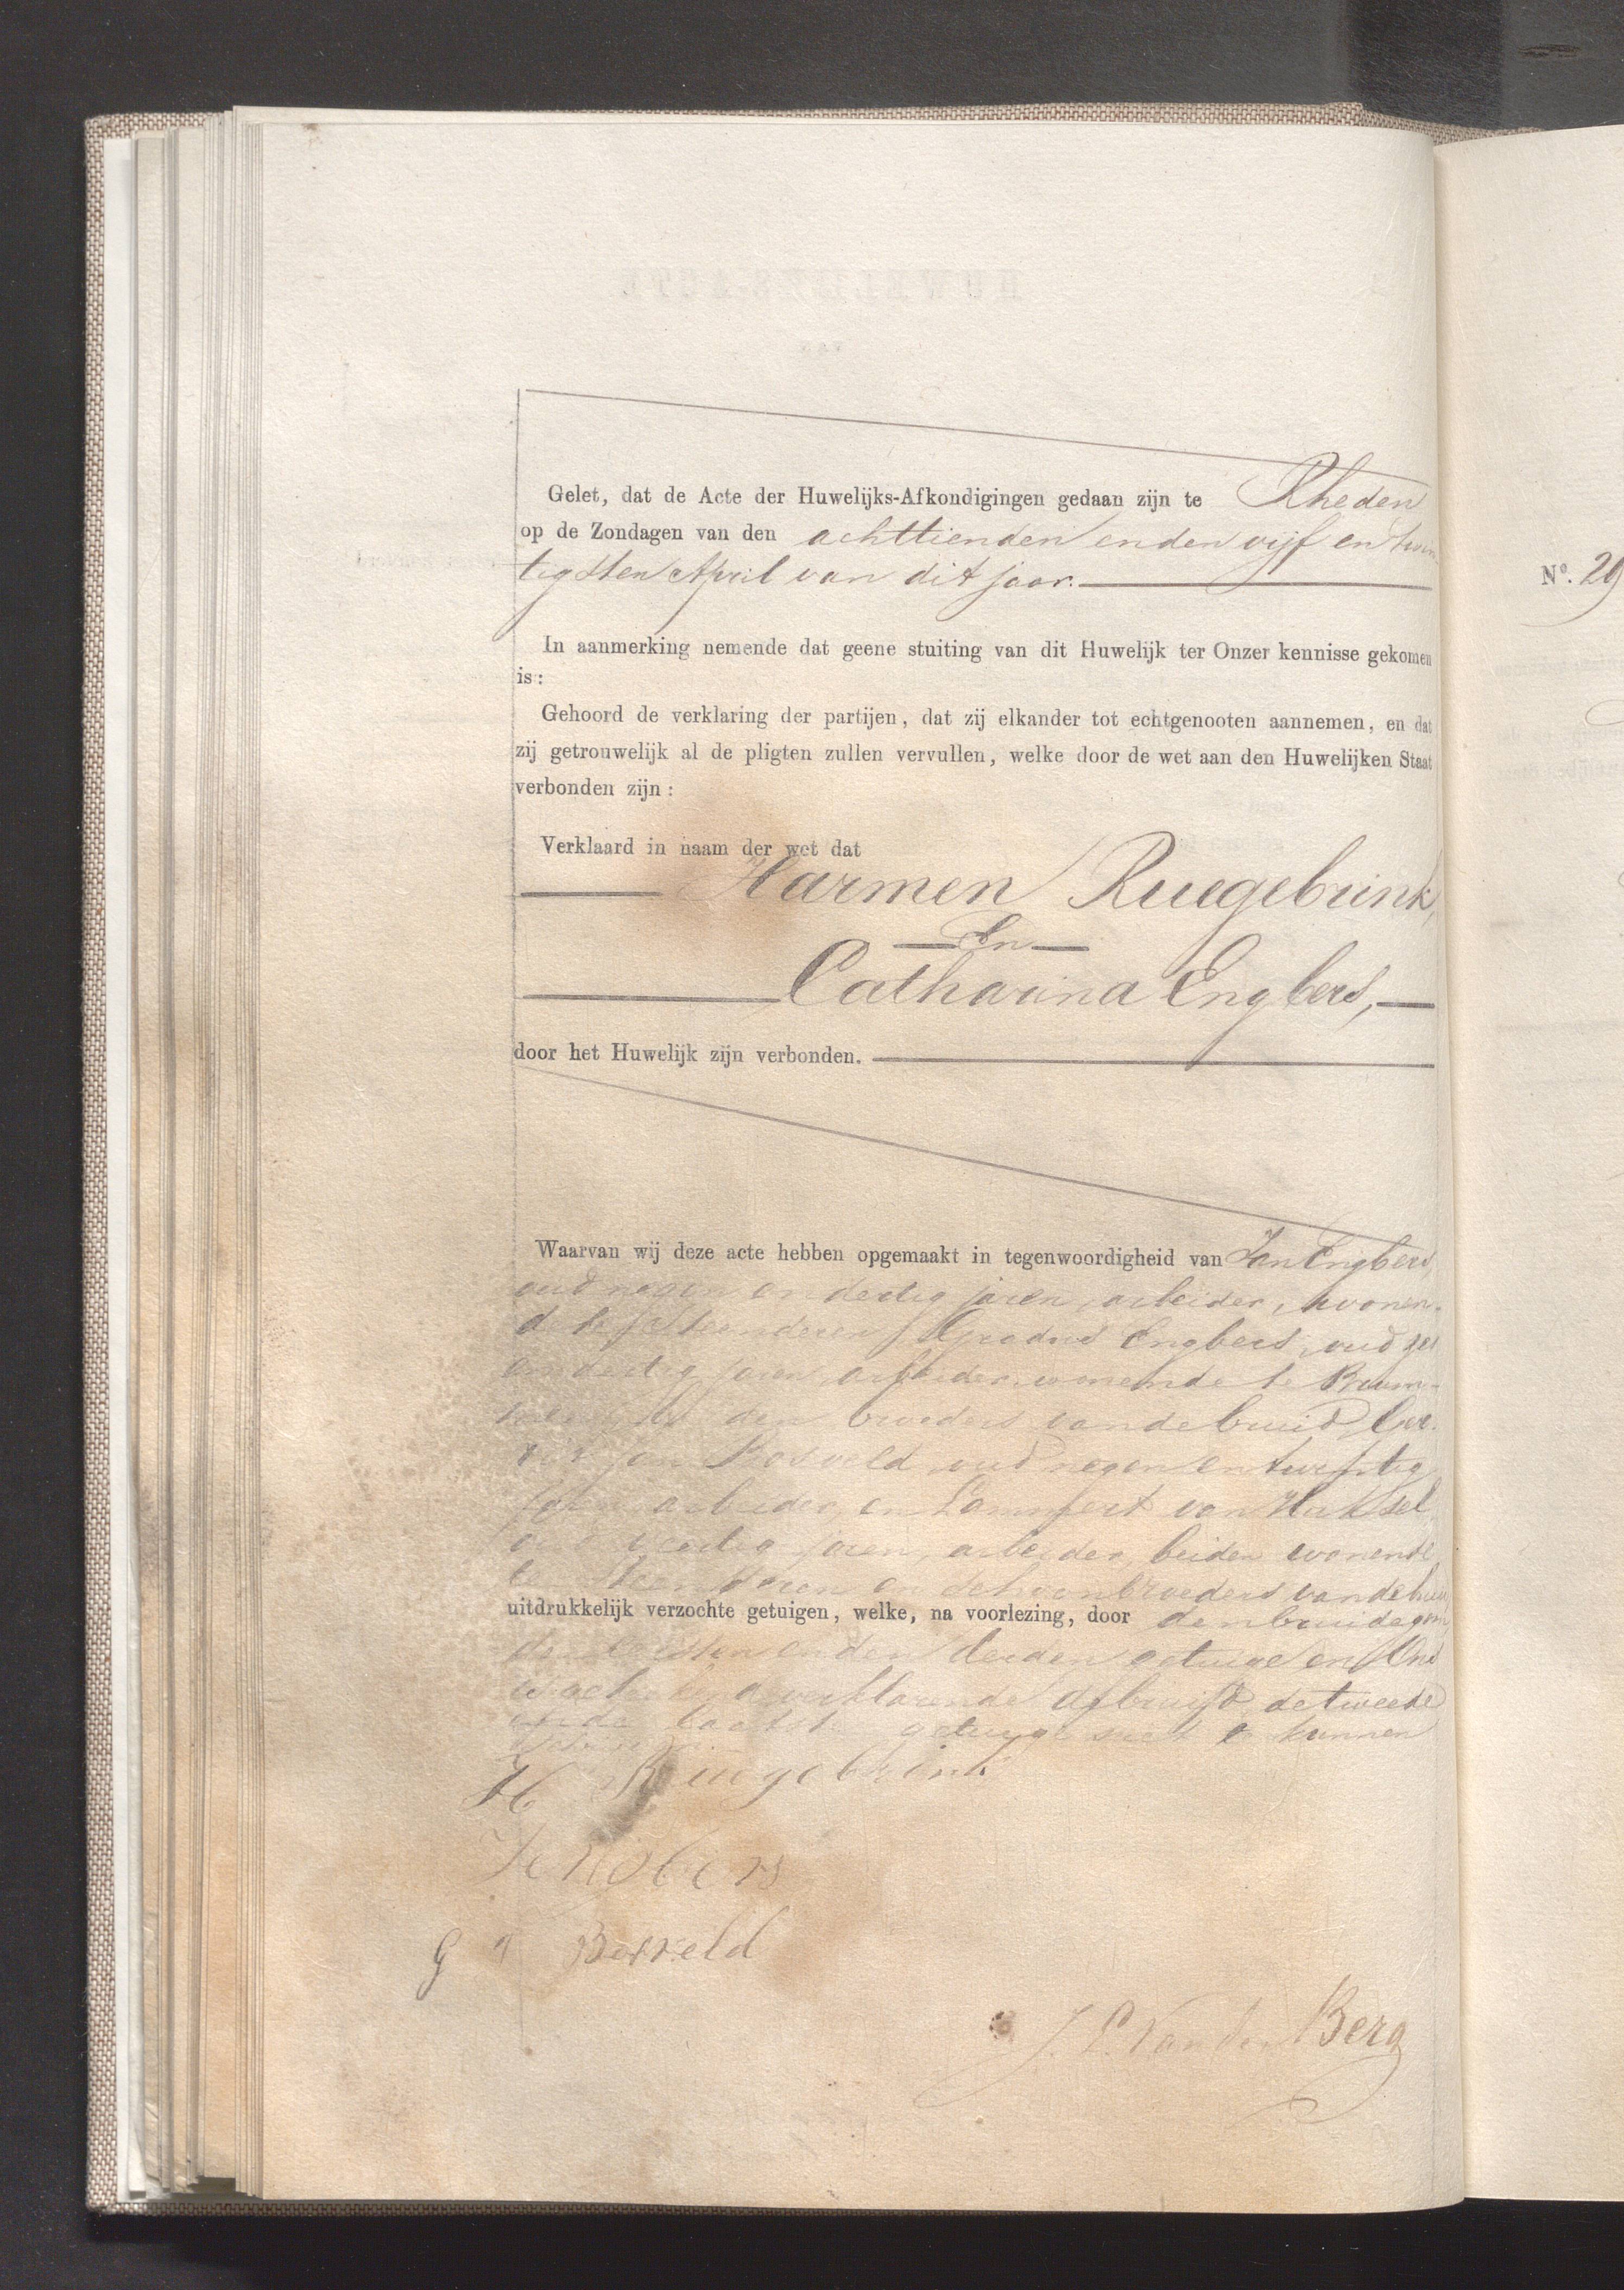 Gelet, dat de Acte der Huwelijks-Afkondigingen gedaan zijn te Rheden
op de Zondagen van den achttienden en den vijf en twin
tigsten April van dit jaar.
In aanmerking nemende dat geene stuiting van dit Huwelijk ter Onzer kennisse gekomen
is:
Gehoord de verklaring der partijen, dat zij elkander tot echtgenooten aannemen, en dat
zij getrouwelijk al de pligten zullen vervullen, welke door de wet aan den Huwelijken Staat
verbonden zijn:
Verklaard in naam der wet dat
Harmen Ruegebrink,
En
Catharina Engbers,
door het Huwelijk zijn verbonden.
Waarvan wij deze acte hebben opgemaakt in tegenwoordigheid van Jan Engbers,
oud negen en dertig jaren, arbeider, wonen-
de te Steenderen, Gradus Engbers, oud zes
en dertig jaren, arbeider, wonende te Brum-
den broeders van de bruid, Ger-
rit Jan Bosveld, oud negen en twintig
jaren, arbeider, en Lammert van Hutsel,
oud veertig jaren, arbeider, beiden wonende
te Steenderen en schoonbroeders van de bruid
uitdrukkelijk verzochte getuigen, welke, na voorlezing, door den bruidegom
den eersten en den derden getuige en Ons
is geteekend verklarende de bruid, de tweede
en de laatste getuige niet te kunnen
H Ruegebrink
J Engbers
G J Bosveld
J. P. Van den Berg
Nº. 29